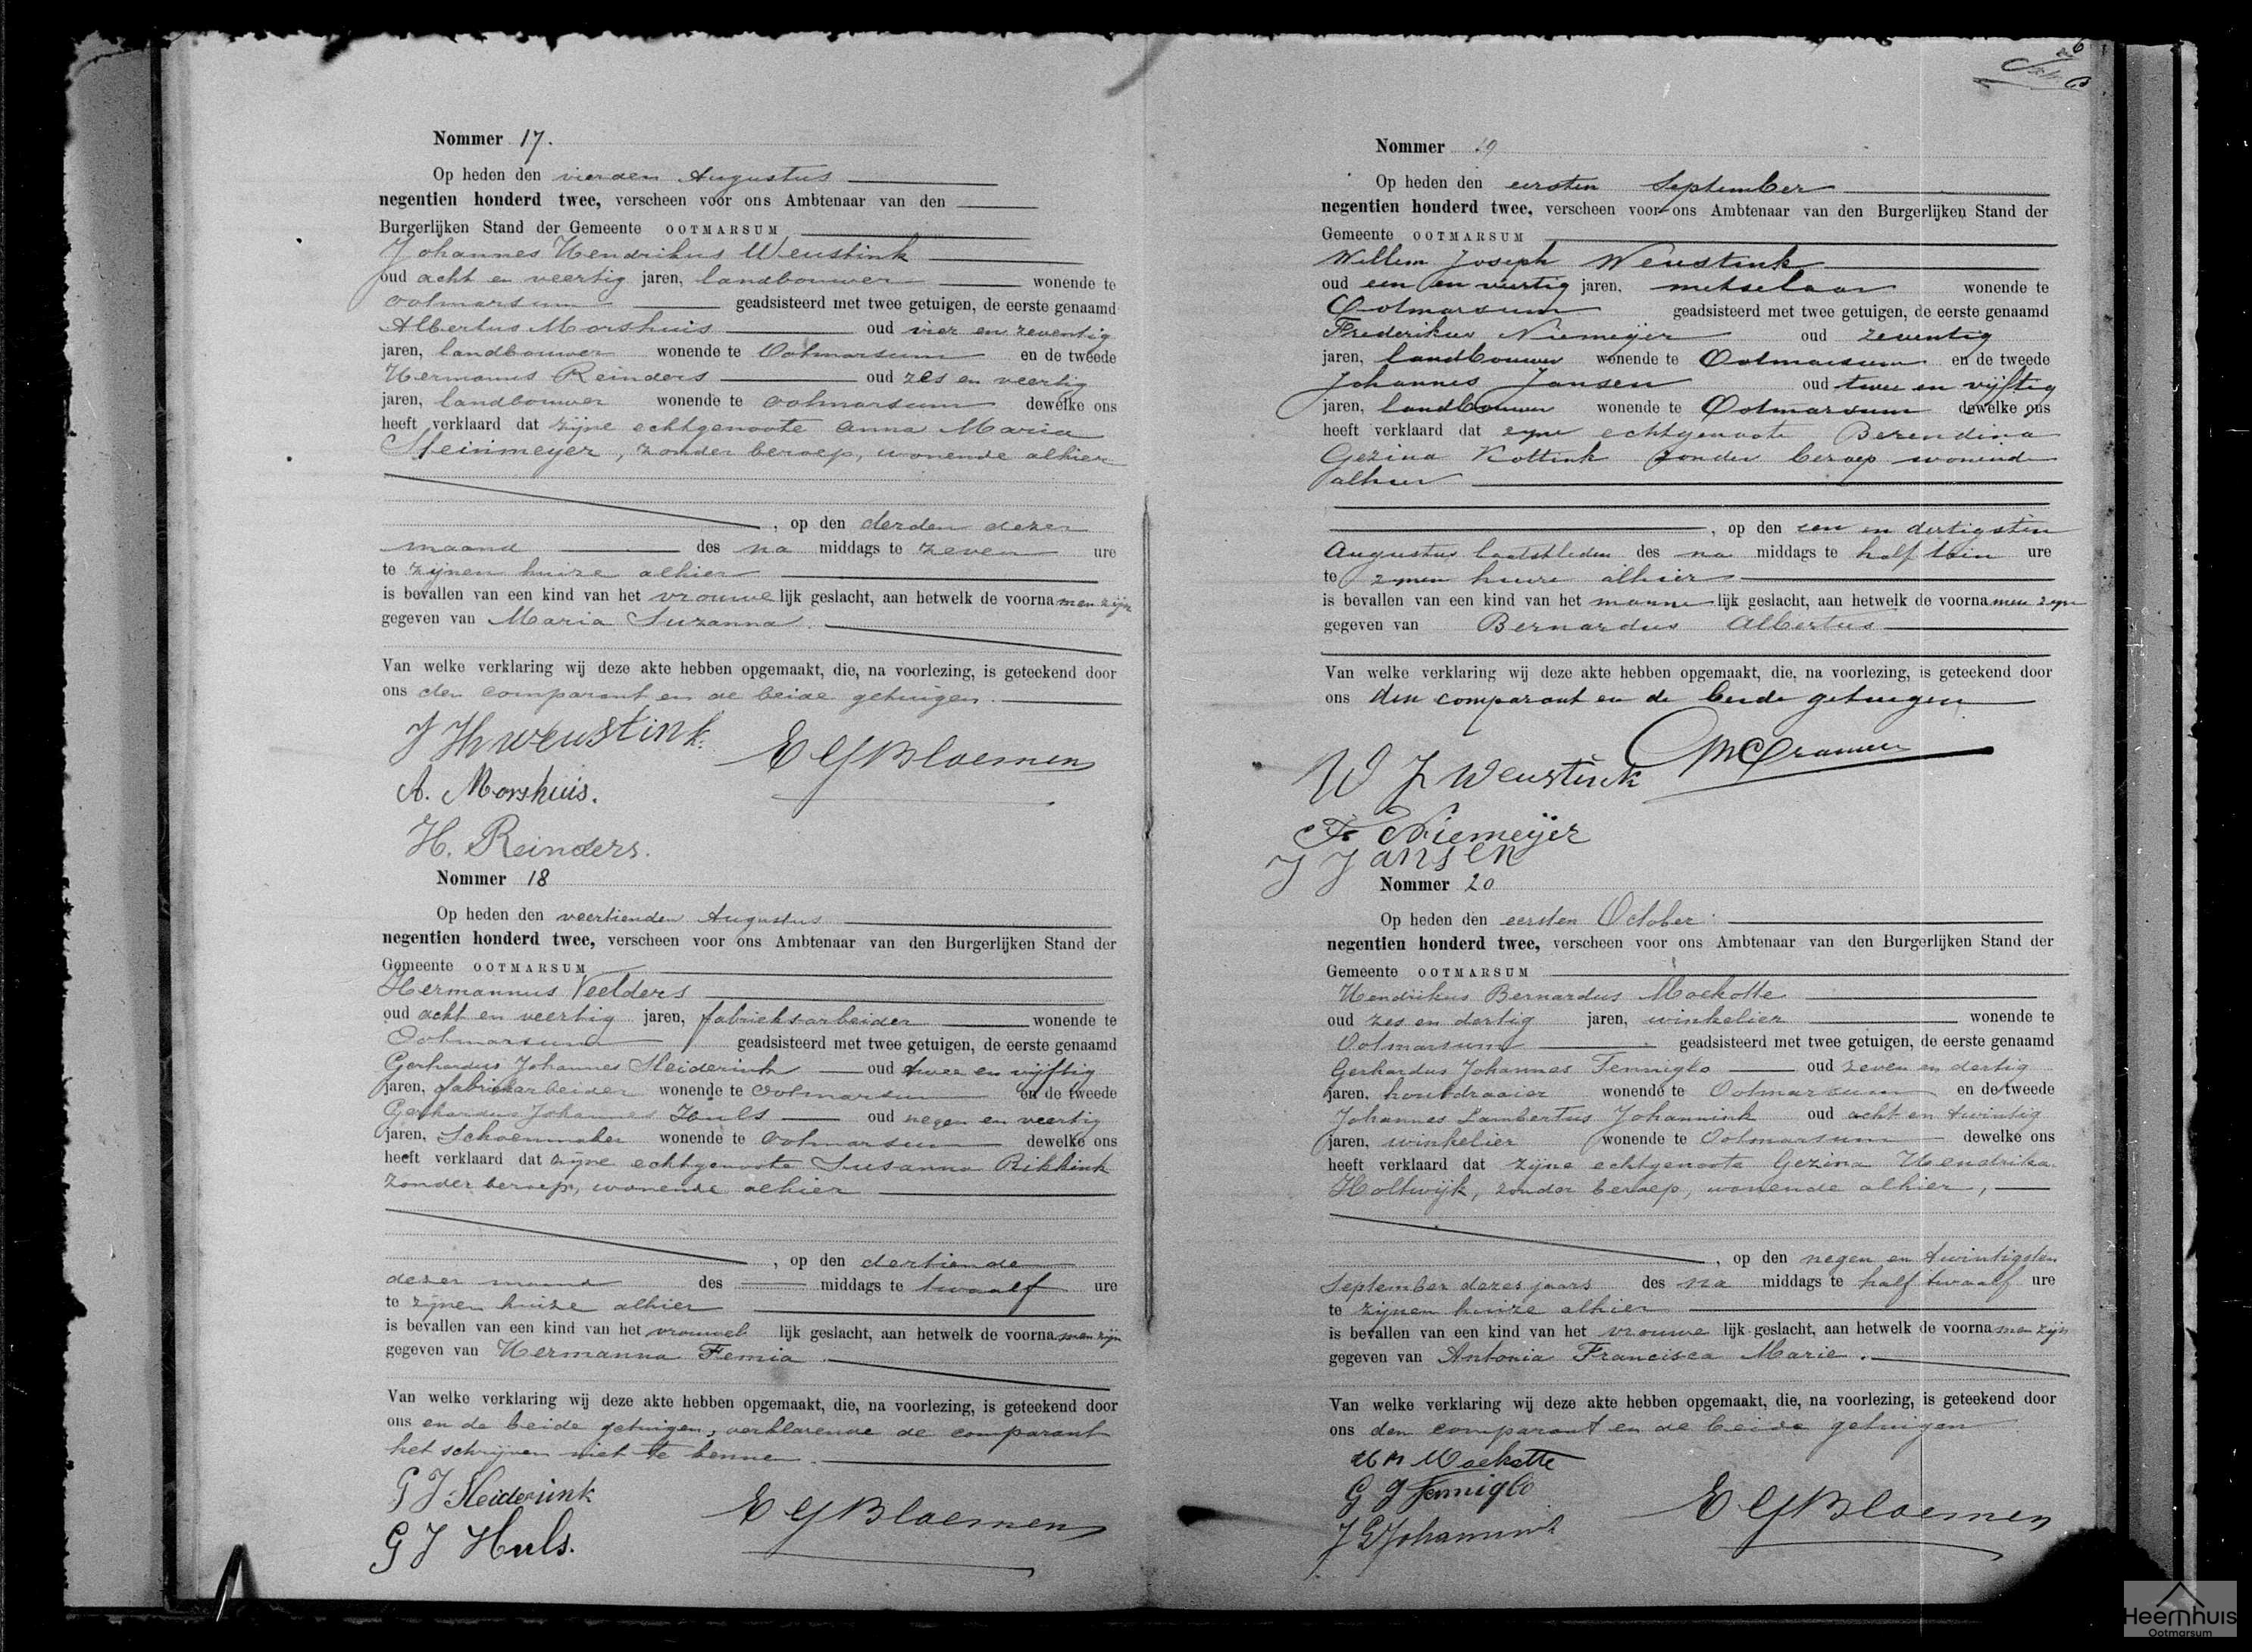 Nommer 17.
Op heden den vierden Augustus
negentien honderd twee, verscheen voor ons Ambtenaar van den
Burgerlijken Stand der Gemeente OOTMARSUM
Johannes Hendrikus Weustink
oud acht en veertig jaren, landbouwer wonende te
Ootmarsum geadsisteerd met twee getuigen, de eerste genaamd
Albertus Morshuis oud vier en zeventig
jaren, landbouwer wonende te Ootmarsum en de tweede
Hermannus Reinders oud zes en veertig
jaren, landbouwer wonende te Ootmarsum dewelke ons
heeft verklaard dat zijne echtgenoote Anna Maria
Steinmeyer, zonder beroep, wonende alhier
, op den derden dezer
maand des na middags te zeven ure
te zijnen huize alhier
is bevallen van een kind van het vrouwe lijk geslacht, aan hetwelk de voorna men zijn
gegeven van Maria Suzanna.
Van welke verklaring wij deze akte hebben opgemaakt, die, na voorlezing, is geteekend door
ons den comparant en de beide getuigen.
J H Weustink.
E G Bloemen
A. Morshuis.
H. Reinders.
Nommer 18
Op heden den veertienden Augustus
negentien honderd twee, verscheen voor ons Ambtenaar van den Burgerlijken Stand der
Gemeente OOTMARSUM
Hermannus Veelders
oud acht en veertig jaren, fabrieksarbeider wonende te
Ootmarsum geadsisteerd met twee getuigen, de eerste genaamd
Gerhardus Johannes Sleiderink oud twee en vijftig
jaren, fabriekarbeider wonende te Ootmarsum en de tweede
Gerhardus Johannes Huls oud negen en veertig
jaren, Schoenmaker wonende te Ootmarsum dewelke ons
heeft verklaard dat zijne echtgenoote Susanna Rikkink
zonder beroep, wonende alhier
, op den dertiende
dezer maand des middags te twaalf ure
te zijnen huize alhier
is bevallen van een kind van het vrouwel lijk geslacht, aan hetwelk de voorna men zijn
gegeven van Hermanna Femia.
Van welke verklaring wij deze akte hebben opgemaakt, die, na voorlezing, is geteekend door
ons en de beide getuigen, verklarende de comparant
het schrijven niet te kennen.
G J Sleiderink
E G Bloemen
G J Huls.
6
Nommer 19
Op heden den eersten September
negentien honderd twee, verscheen voor ons Ambtenaar van den Burgerlijken Stand der
Gemeente OOTMARSUM
Willem Joseph Weustink
oud een en veertig jaren, metselaar wonende te
Ootmarsum geadsisteerd met twee getuigen, de eerste genaamd
Frederikus Niemeijer oud zeventig
jaren, landbouwer wonende te Ootmarsum en de tweede
Johannes Jansen oud twee en vijftig
jaren, landbouwer wonende te Ootmarsum dewelke ons
heeft verklaard dat zyne echtgenoote Berendina
Gezina Kottink zonder beroep wonende
alhier
, op den een en dertigsten
Augustus laatstleden des na middags te half tien ure
te zynen huize alhier
is bevallen van een kind van het manne lijk geslacht, aan hetwelk de voorna men zyn
gegeven van Bernardus Albertus
Van welke verklaring wij deze akte hebben opgemaakt, die, na voorlezing, is geteekend door
ons den comparant en de beide getuigen
W J Weustink
F. Niemeijer
J Jansen
Nommer 20
Op heden den eersten October
negentien honderd twee, verscheen voor ons Ambtenaar van den Burgerlijken Stand der
Gemeente OOTMARSUM
Hendrikus Bernardus Moekotte
oud zes en dertig jaren, winkelier wonende te
Ootmarsum geadsisteerd met twee getuigen, de eerste genaamd
Gerhardus Johannes Fenniglo oud zeven en dertig
jaren, houtdraaier wonende te Ootmarsum en de tweede
Johannes Lambertus Johannink oud acht en twintig
jaren, winkelier wonende te Ootmarsum dewelke ons
heeft verklaard dat zijne echtgenoote Gezina Hendrika
Holtwijk, zonder beroep, wonende alhier,
, op den negen en twintigsten
September dezes jaars des na middags te half twaalf ure
te zijnen huize alhier
is bevallen van een kind van het vrouwe lijk geslacht, aan hetwelk de voorna men zijn
gegeven van Antonia Francisca Marie.
Van welke verklaring wij deze akte hebben opgemaakt, die, na voorlezing, is geteekend door
ons den comparant en de beide getuigen
Moekotte
G J Fenniglo
E G Bloemen
Johannink
Heemhuis
Ootmarsum